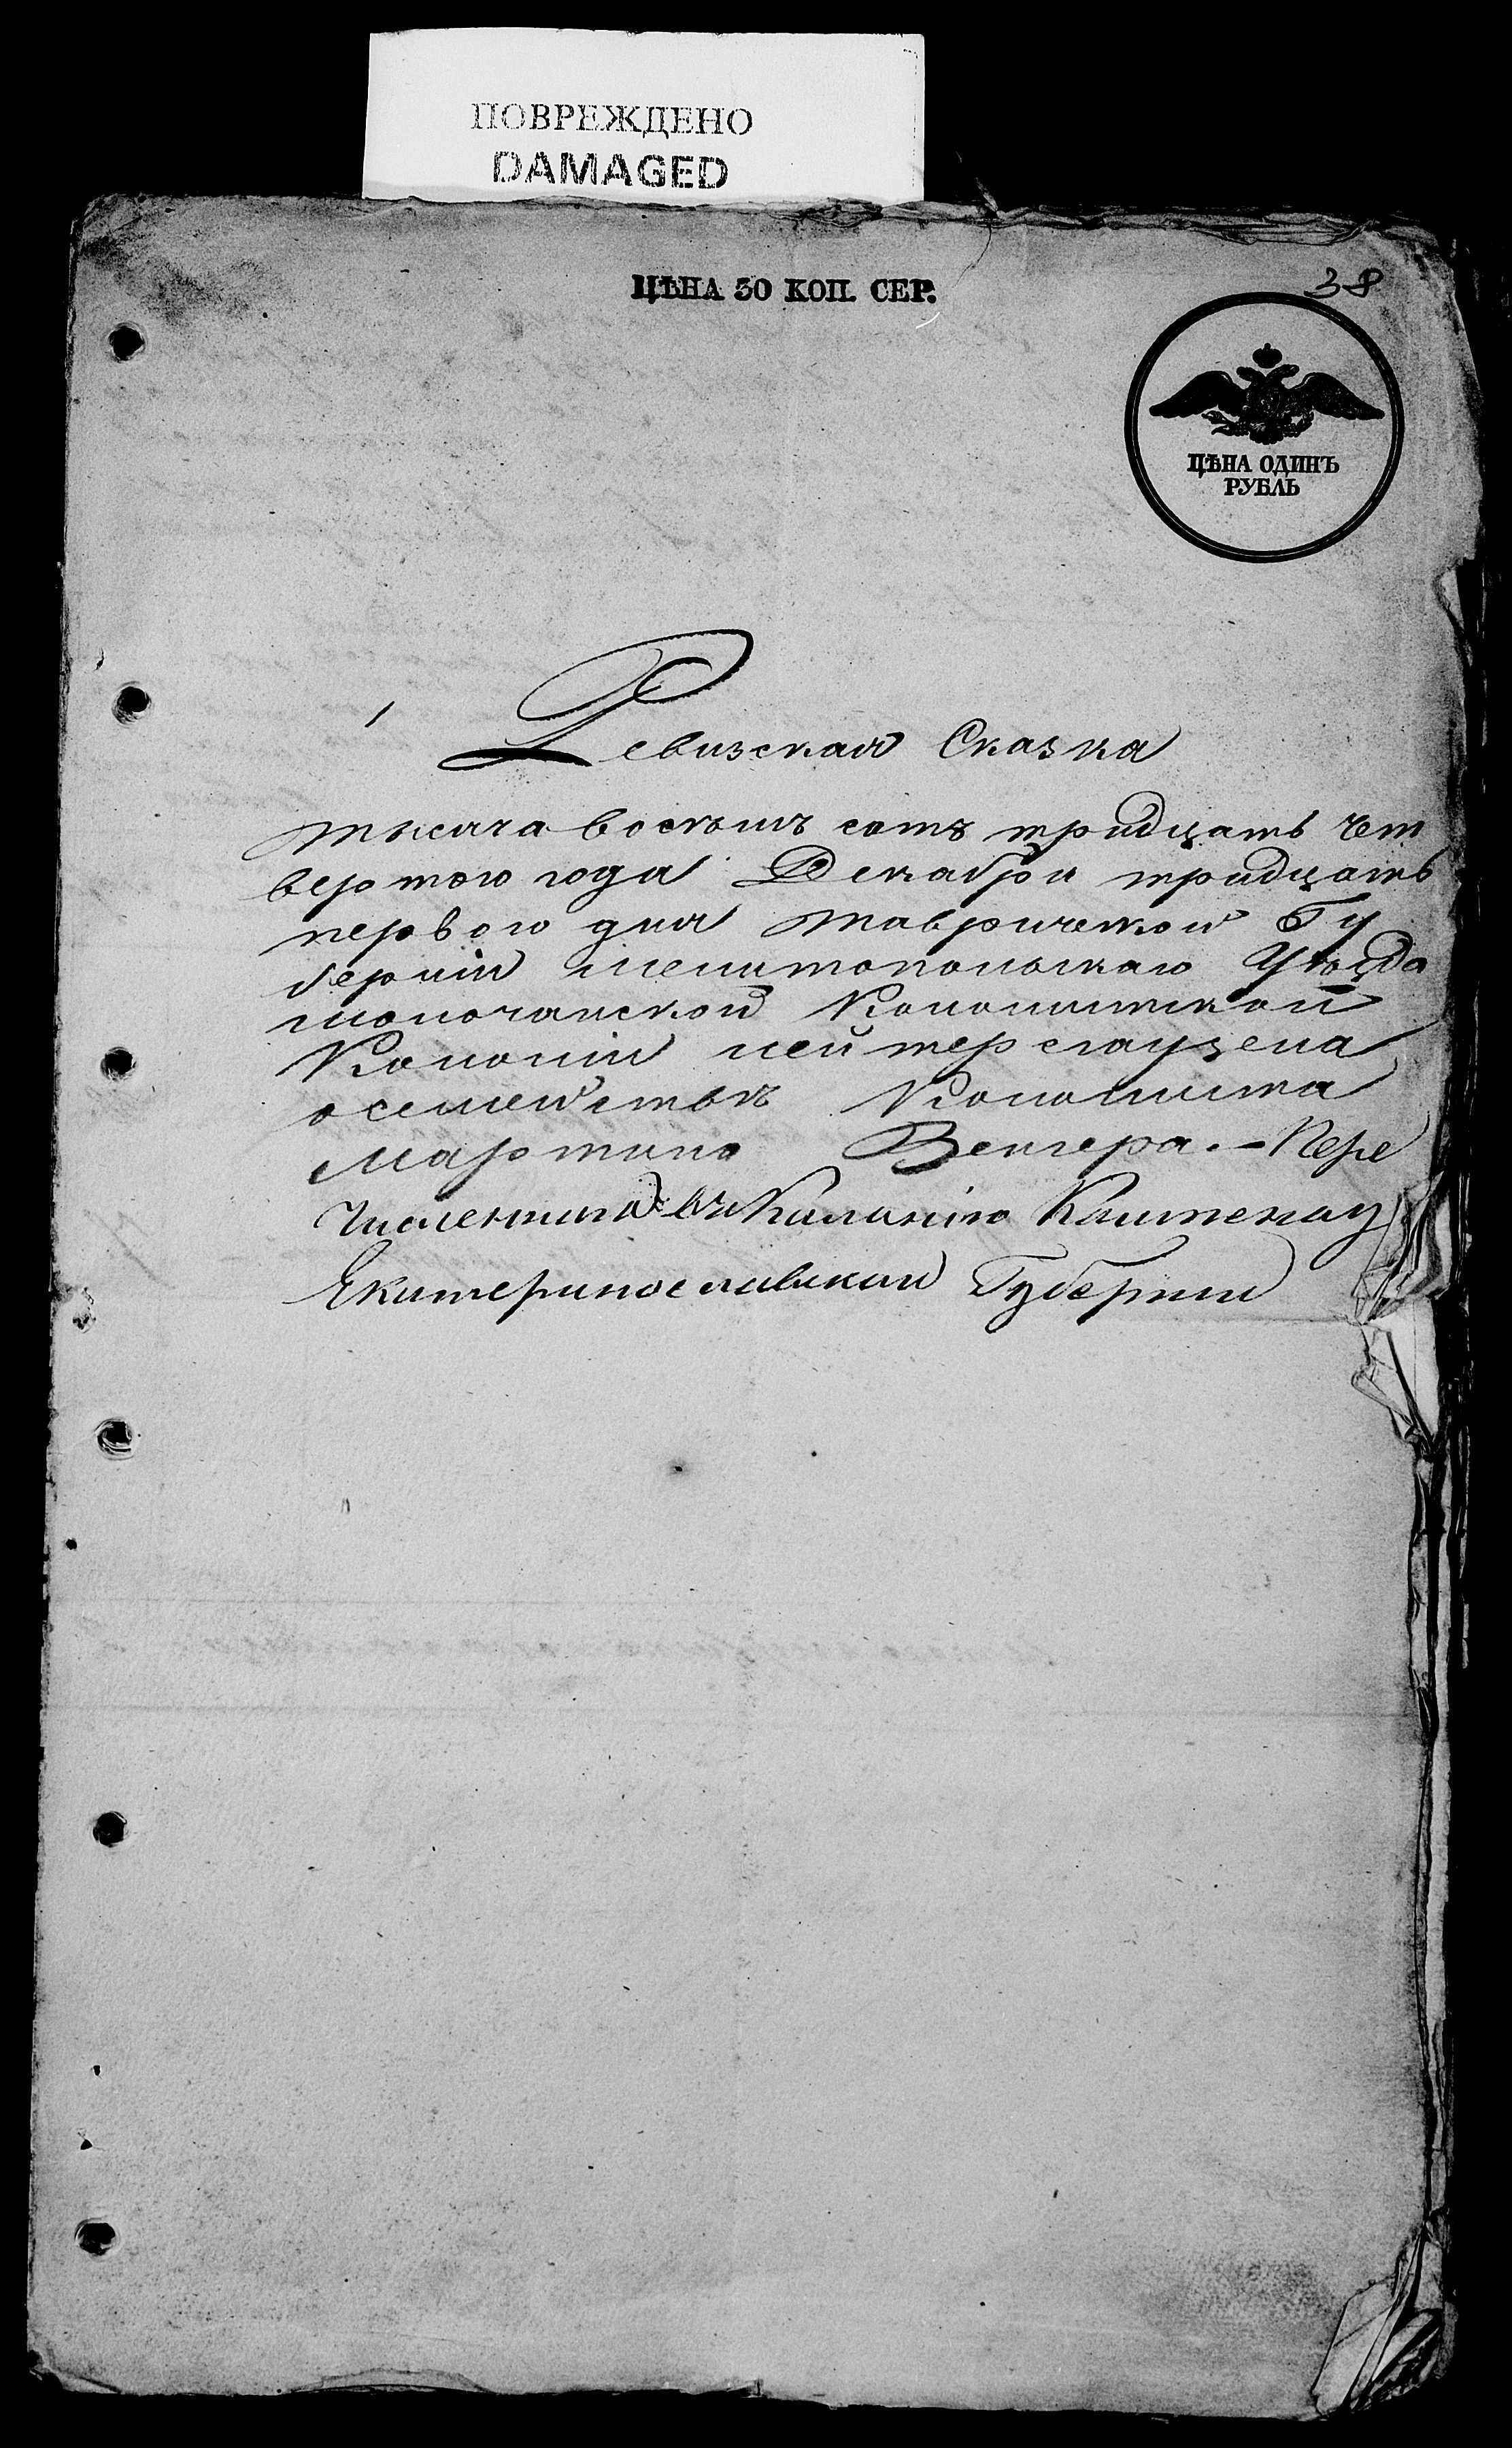 ПОВРЕЖДЕНО
DAMAGED
ЦѢНА 30 КОП. СЕР.
38
ЦѢНА ОДИНЪ
РУБЛЬ
Ревизская Сказка
тысяча восемь сотъ тридцать чет
вертого года Декабря тридцать
первого дня Таврической Гу
берніи Мелитопольскаго Уѣзда
Молочанской Колонистской
Колоніи Нейтерсгаузена
о семействѣ Колониста
Мартина Венгера. - Пере
Численнаго въ Калонію Каитенау
Екатеринославской Губерніи